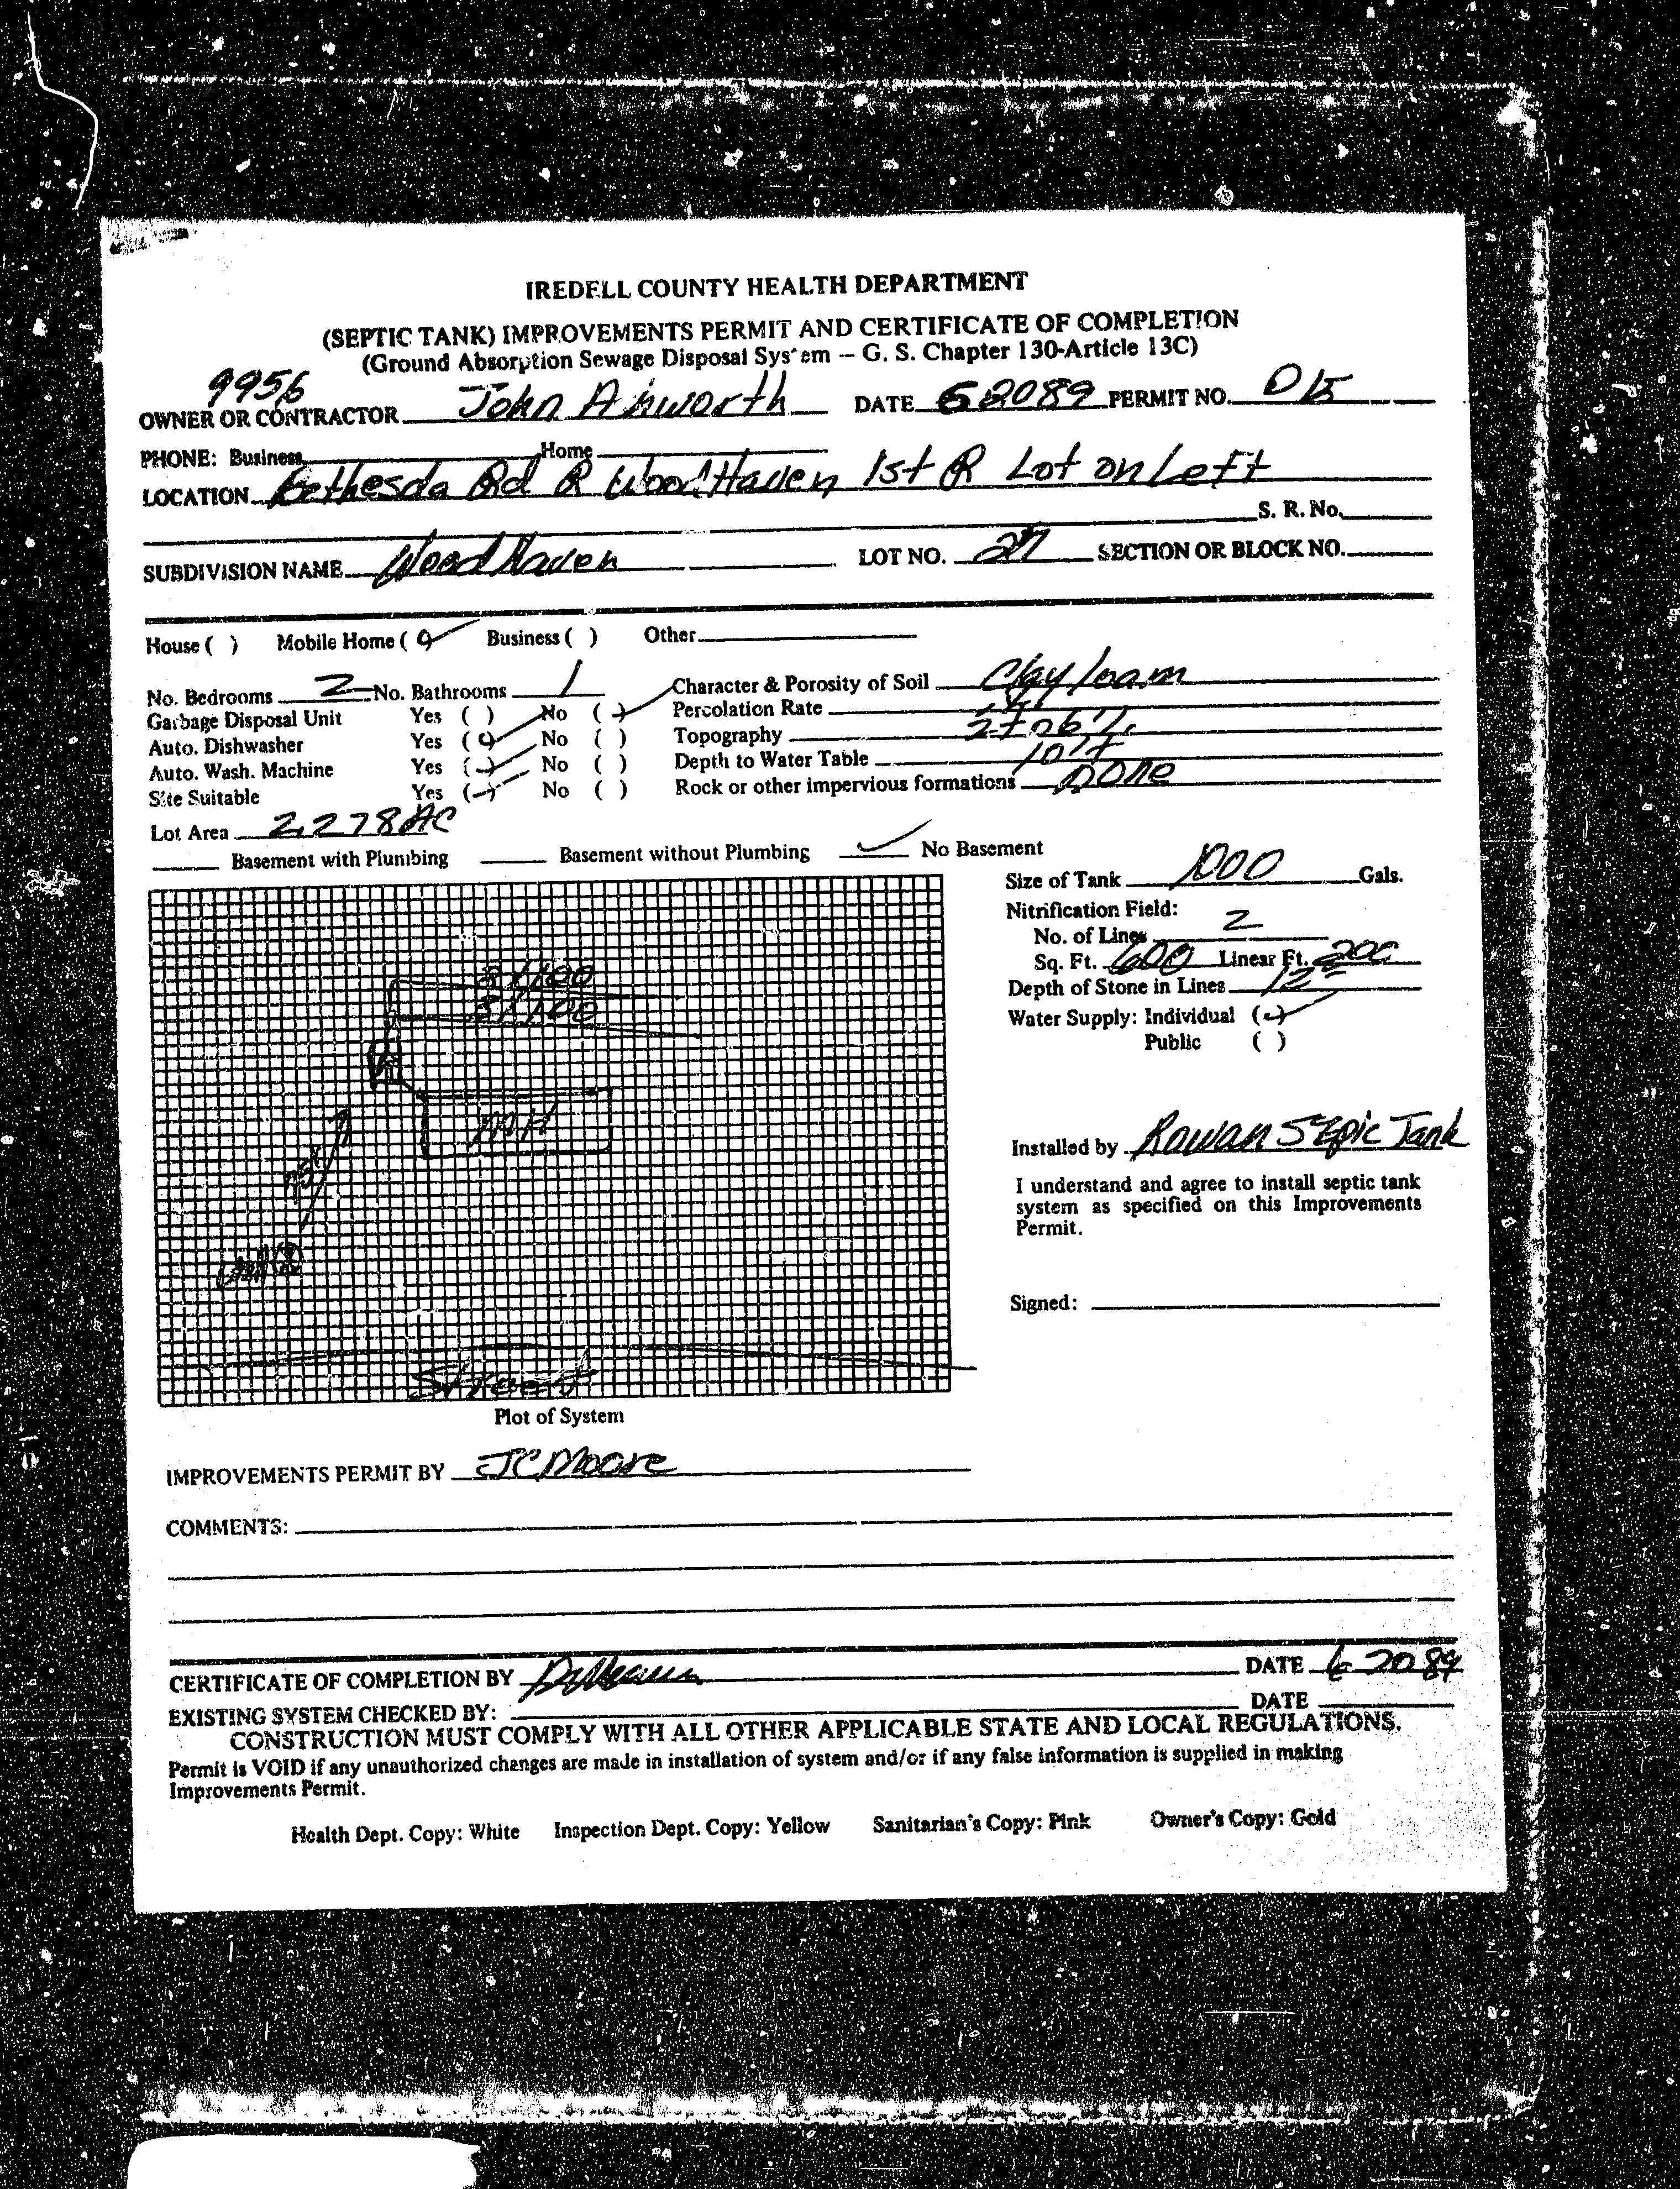 IREDELL COUNTY HEALTH DEPARTMENT
(SEPTIC TANK) IMPROVEMENTS PERMIT AND CERTIFICATE OF COMPLETION
(Ground Absorption Sewage Disposal System -- G. S. Chapter 130-Article 13C)
9956
OWNER OR CONTRACTOR John DATE 62089 PERMIT NO.
PHONE: Business Home
LOCATION Bethesda Rd R WoodHaven 1st R Lot on Left
S. R. No.
SUBDIVISION NAME WoodHaven LOT NO. 27 SECTION OR BLOCK NO.
House ( ) Mobile Home ( ) Business ( ) Other
No. Bedrooms 2 No. Bathrooms 1 Character & Porosity of Soil Clay loam
Garbage Disposal Unit Yes ( ) No ( ) Percolation Rate
Auto. Dishwasher Yes ( ) No ( ) Topography
Auto. Wash. Machine Yes ( ) No ( ) Depth to Water Table
Site Suitable Yes ( ) No ( ) Rock or other impervious formations none
Lot Area 2.278 AC
Basement with Plumbing Basement without Plumbing ✓ No Basement
Size of Tank 1000 Gals.
Nitrification Field:
No. of Lines 2
Sq. Ft. 600 Linear Ft. 200
Depth of Stone in Lines 12
Water Supply: Individual ( )
Public ( )
3x100
3x100
MH
75'
Well
Street
Installed by Rowan Sepic Tank
I understand and agree to install septic tank
system as specified on this Improvements
Permit.
Signed:
Plot of System
IMPROVEMENTS PERMIT BY JC Moore
COMMENTS:
CERTIFICATE OF COMPLETION BY DATE 6 20 89
EXISTING SYSTEM CHECKED BY: DATE
CONSTRUCTION MUST COMPLY WITH ALL OTHER APPLICABLE STATE AND LOCAL REGULATIONS.
Permit is VOID if any unauthorized changes are made in installation of system and/or if any false information is supplied in making
Improvements Permit.
Health Dept. Copy: White Inspection Dept. Copy: Yellow Sanitarian's Copy: Pink Owner's Copy: Gold